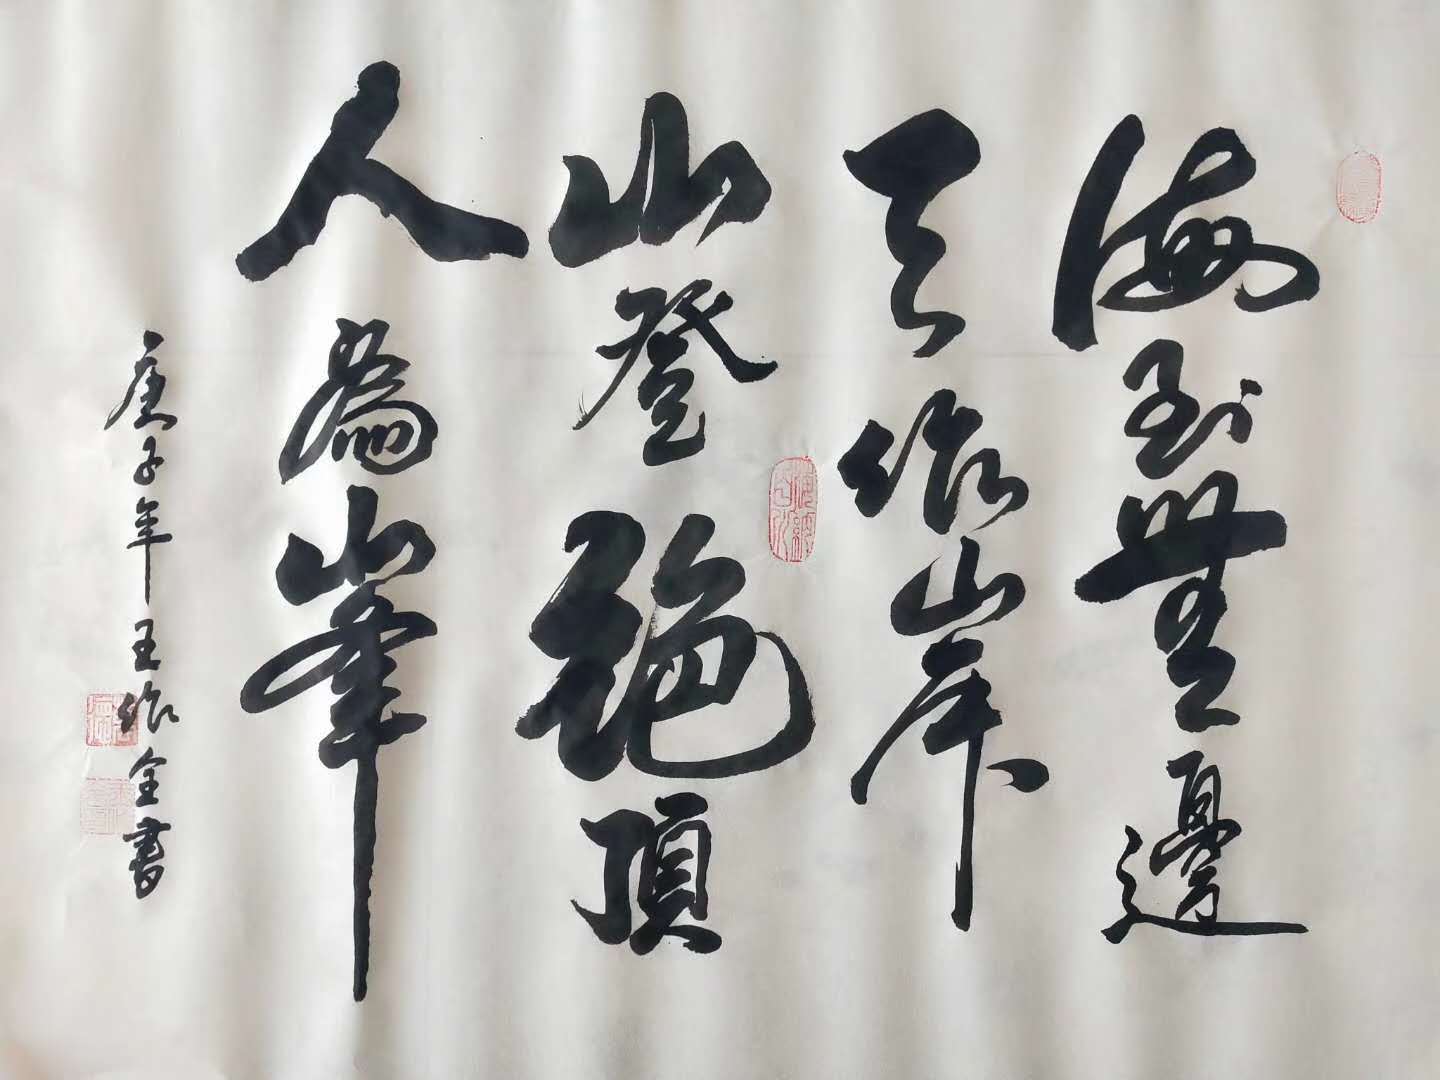 海到無邊
天作岸
山登絕頂
人為峰
庚子年王作全書